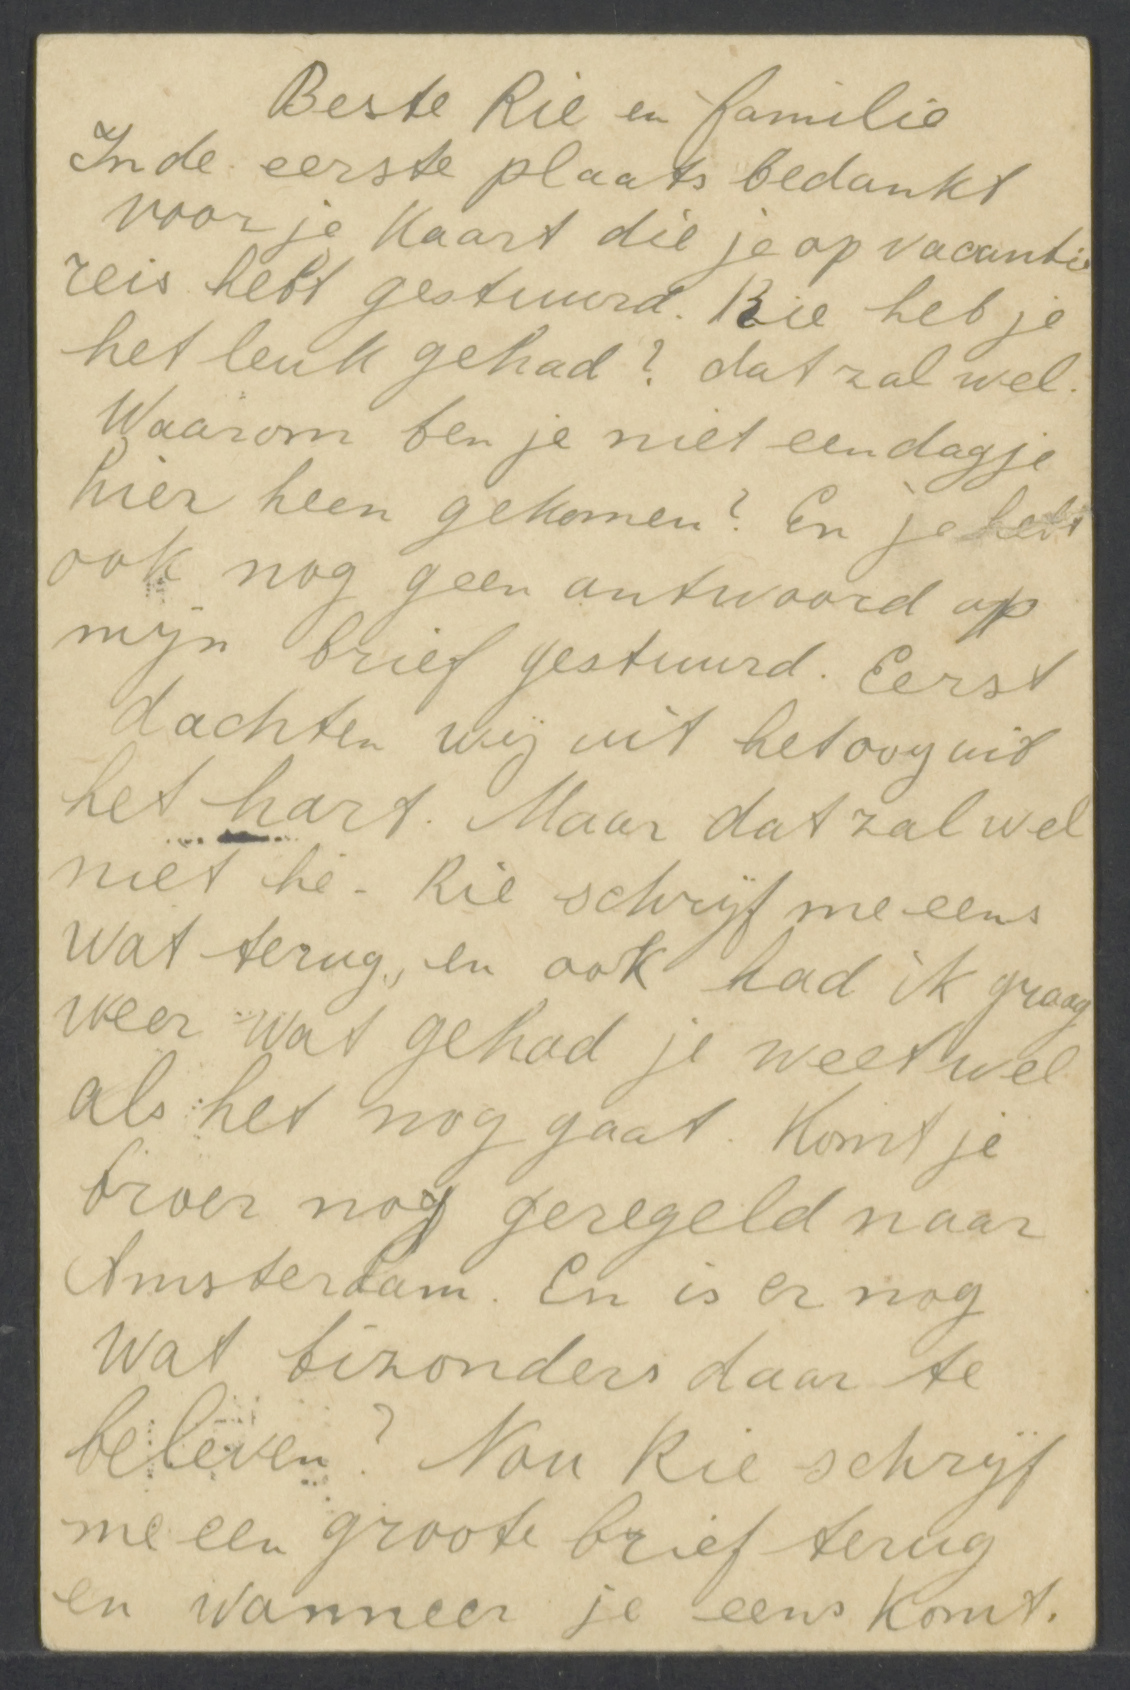 Beste Rie en familie
In de eerste plaats bedankt
voor je kaart die je op vacantie
reis hebt gestuurd. Rie heb je
het leuk gehad? dat zal wel.
Waarom ben je niet een dagje
hier heen gekomen? En je hebt
ook nog geen antwoord op
mijn brief gestuurd. Eerst
dachten wij uit het oog uit
het hart. Maar dat zal wel
niet hè. Rie schrijf me eens
wat terug, en ook had ik graag
weer wat gehad je weet wel
als het nog gaat. Komt je
broer nog geregeld naar
Amsterdam. En is er nog
wat bizonders daar te
beleven? Nou Rie schrijf
me een groote brief terug
en wanneer je eens komt.